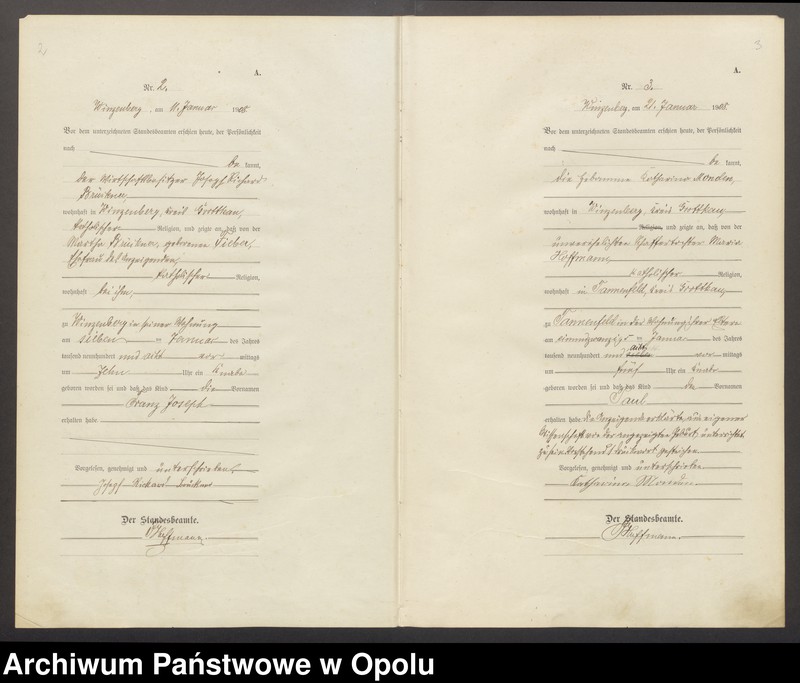 2
A.
Nr. 2.
Winzenberg, am 11. Januar 1908
Vor dem unterzeichneten Standesbeamten erschien heute, der Persönlichkeit
nach
be kannt,
der Wirtschaftsbesitzer Joseph Richard
Brückner,
wohnhaft in Winzenberg, Kreis Grottkau,
katholischer Religion, und zeigte an, daß von der
Martha Brückner, geborenen Fieber,
Ehefrau des Anzeigenden,
katholischer Religion,
wohnhaft bei ihm,
zu Winzenberg in seiner Wohnung
am sieben Januar des Jahres
tausend neunhundert und acht vor mittags
um zehn Uhr ein Knabe
geboren worden sei und daß das Kind die Vornamen
Franz Joseph
erhalten habe
Vorgelesen, genehmigt und unterschrieben
Josef Richard Brückner
Der Standesbeamte.
Hoffmann.
3
A.
Nr. 3.
Winzenberg, am 21. Januar 1908
Vor dem unterzeichneten Standesbeamten erschien heute, der Persönlichkeit
nach
be kannt,
die Hebamme Katharina
wohnhaft in Winzenberg, Kreis Grottkau
Religion, und zeigte an, daß von der
unverehelichten Maria
Hoffmann,
katholischer Religion,
wohnhaft in Tannenfeld, Kreis Grottkau,
zu Tannenfeld in der Wohnung ihrer Eltern
am einundzwanzigsten Januar des Jahres
tausend neunhundert und acht vor mittags
um fünf Uhr ein Knabe
geboren worden sei und daß das Kind den Vornamen
Paul
erhalten habe. Die Anzeigende erklärte aus eigener
Wissenschaft von der angezeigten Geburt unterrichtet
zu sein. Vorstehend 1 Druckwort gestrichen.
Vorgelesen, genehmigt und unterschrieben
Katharina
Der Standesbeamte.
Hoffmann.
Archiwum Państwowe w Opolu